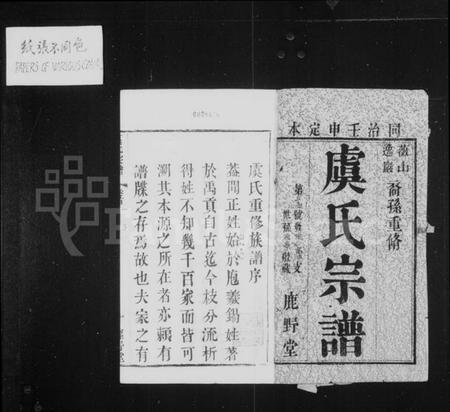 紙張不同色
PAPERS OF VARIOUS COLOR
同治壬申定本
裔孫重脩
虞氏宗譜
鹿野堂
虞氏重修族譜序
葢聞正姓始於庖羲錫姓著
於禹貢自古迄今枝分流析
得姓不知幾千百家而皆可
溯其本源之所在者亦賴有
譜牒之存焉故也夫家之有